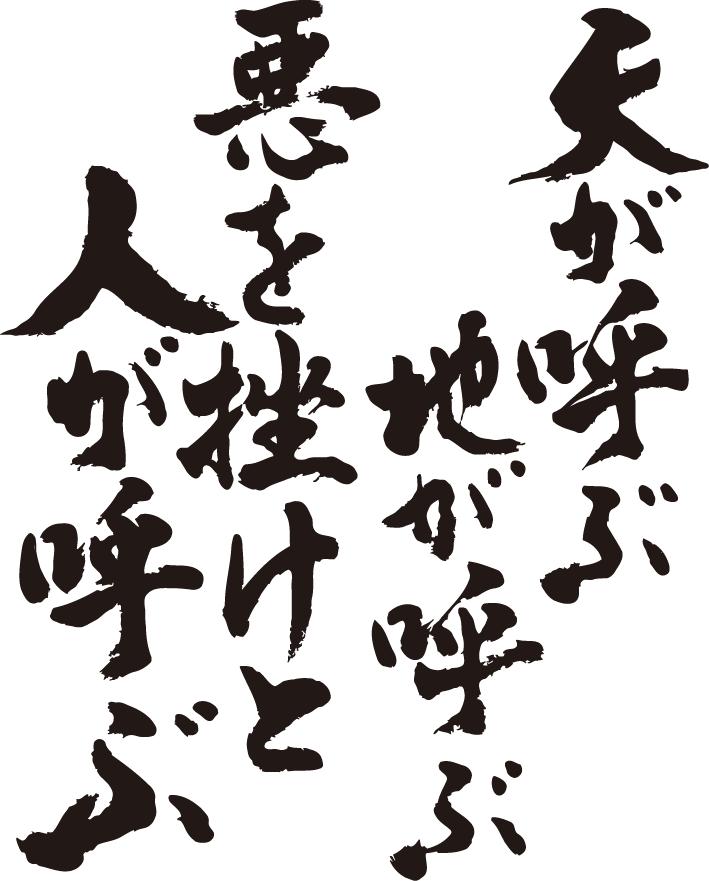 天が呼ぶ
地が呼ぶ
悪を挫けと
人が呼ぶ